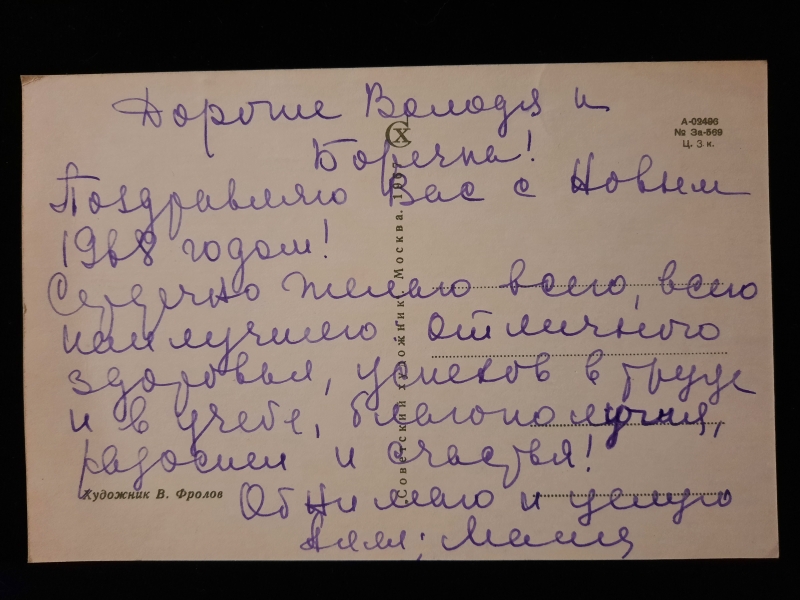 Дорогие Володя и
Боречка!
Поздравляю Вас с Новым
1968 годом!
Сердечно желаю всего, всего
наилучшего отличного
здоровья, успехов в труде
и в учебе, благополучия,
радости и счастья!
Обнимаю и целую
Художник В. Фролов
Советский художник. Москва. 1967
А-02496
№ За-569
Ц. 3 к.